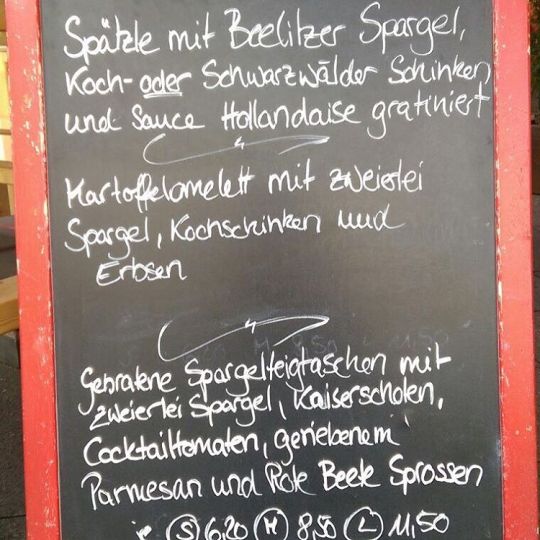 Spätzle mit Beelitzer Spargel,
Koch- oder Schwarzwälder Schinken
und Sauce Hollandaise gratiniert
Kartoffelomelett mit zweierlei
Spargel, Kochschinken und
Erbsen
Gebratene Spargelteigtaschen mit
zweierlei Spargel, Kaiserschoten,
Cocktailtomaten, geriebenem
Parmesan und Rote Beete Sprossen
je S 6,20 M 8,50 L 11,50